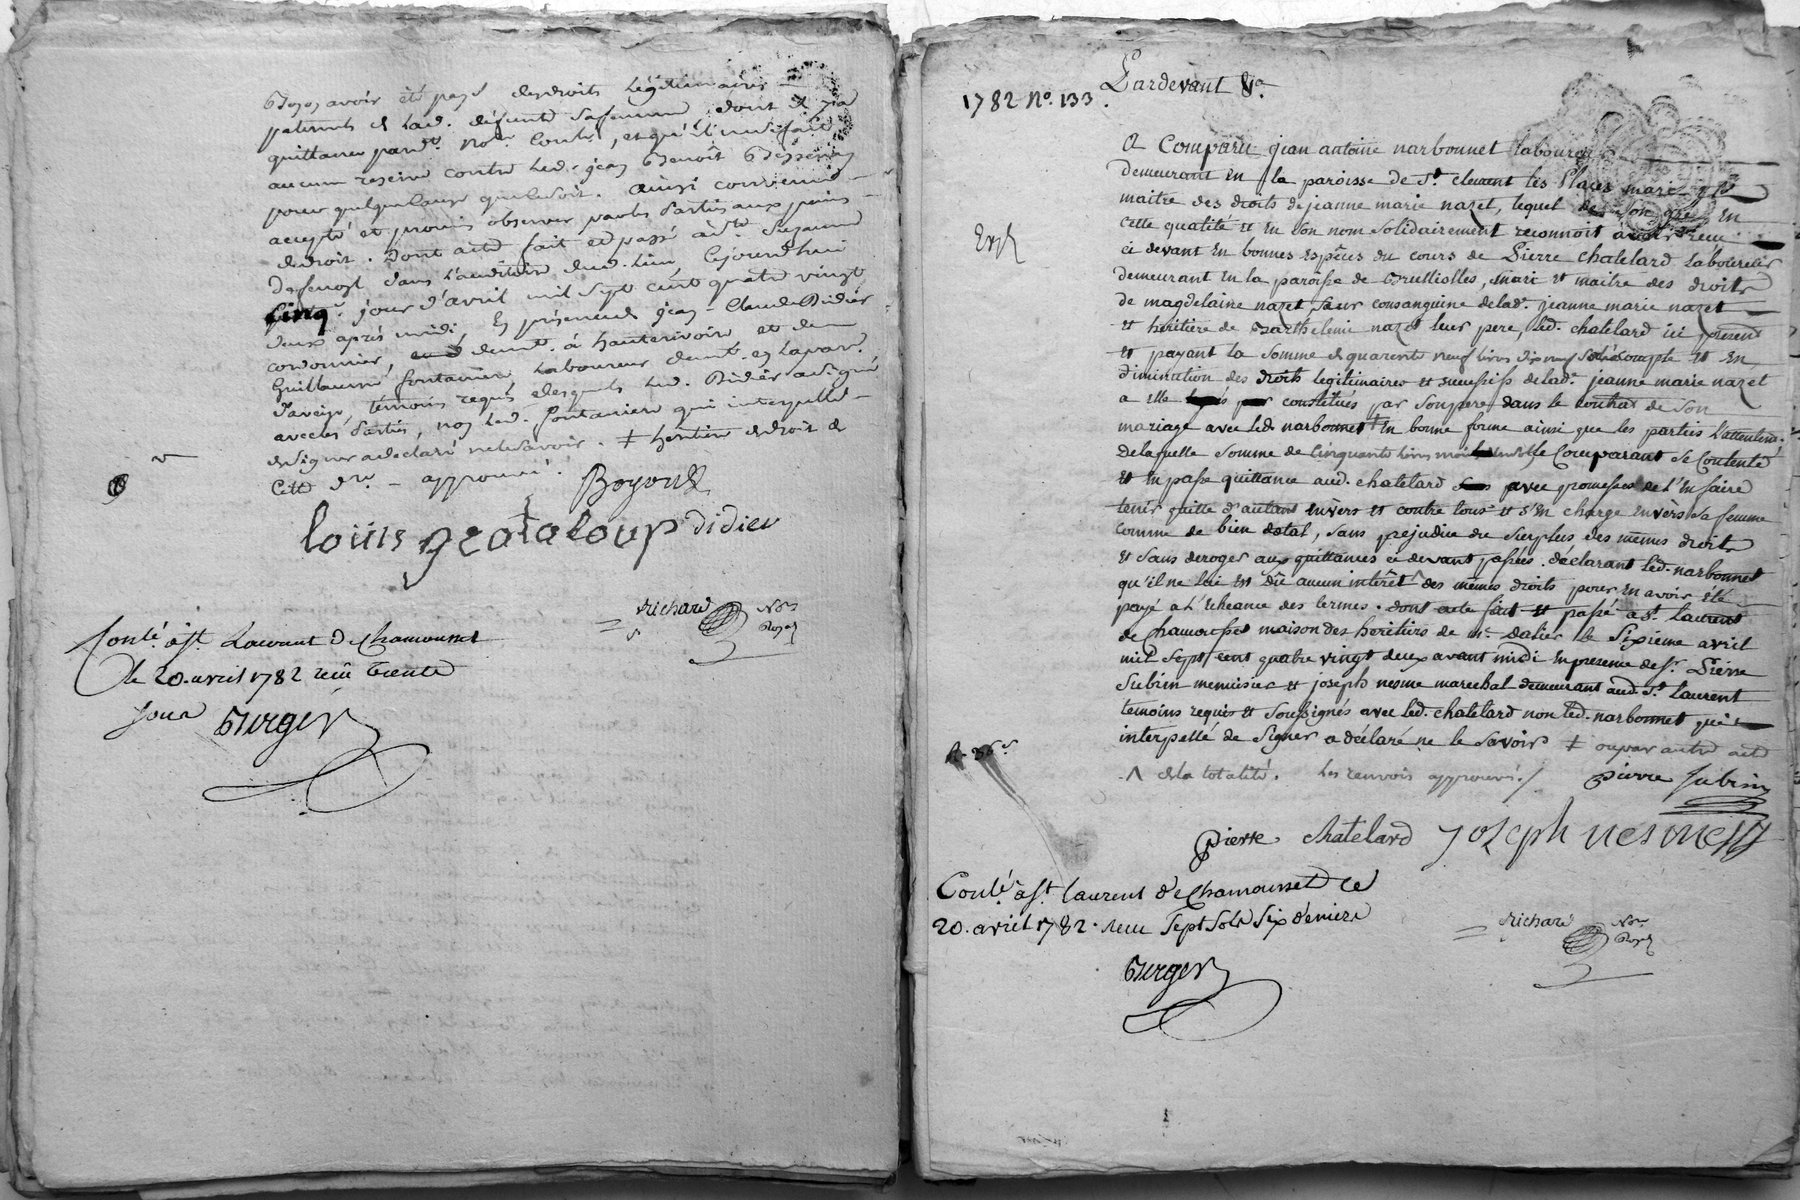 avoir été payé desdroits légitimaires
paternels et lad. défunte safemme dont il y a
quittance pardt. nore. Contlé, et qu'il ne se fait
aucune reserve contre led. jean Benoît
pour quelque cause que ce soit. ainsi convenu
accepté et promis observer par les Parties aux peines
de droit. Dont acte fait et passé
dans l'auditoire dud. lieu cejourd'hui
Cinq. jour d'avril mil sept cent quatre vingt
deux après midi, En présence de jean-Claude Didier
cordonnier, demt. à hauterivoire et de
Guillaume fontanière Laboureur demt. en laparr.
d'aveize, témoins requis desquels led. Didier a signé
avec les Parties, non led. fontaniere qui interpellé
de signer a declaré ne le savoir. ‡ heritier de droit de
Cette dre. - approuvé.
Boyoud
louis grataloup didier
Richard Nre
Royal
Contlé à St. Laurent De Chamousset
le 20. avril 1782 reçu trente
sous Berger
1782 No. 133.
Pardevant &c.
A Comparu jean antoine narbonnet laboureur
demeurant en la paroisse de St. clement les Places mari et
maitre des droits de jeanne marie nazet, lequel de son gré en
cette qualité et en son nom solidairement reconnoit avoir reçu
ci devant en bonnes espêces du cours de Pierre chatelard laboureur
demeurant en la paroisse de Brulliolles, mari et maitre des droits
de magdelaine nazet sœur consanguine de lade. jeanne marie nazet
et heritière de Barthelemi nazet leur pere, led. chatelard ici present
et payant la somme de quarente neuf livres dix neuf sols à compte et en
diminution des droits legitimaires et successifs de lade. jeanne marie nazet
a elle constitués par son pere dans le contrat de son
mariage avec led. narbonnet ‡ en bonne forme ainsi que les parties l'attestent.
de laquelle somme de Cinquante livres moins un sol le Comparant se Contente
et en passe quittance aud. chatelard avec promesses de l'en faire
tenir quitte d'autant envèrs et contre tous et s'en charge envèrs sa femme
comme de bien dotal, sans prejudice du surplus des mêmes droits
et sans deroger aux quittances ci devant passées. déclarant led. narbonnet
qu'il ne lui est dû aucun intérêt ^ des mêmes droits pour en avoir été
payé a l'echeance des termes. dont acte fait et passé a St. laurent
de chamousset maison des heritiers de Mr. dalier le sixieme avril
mil sept cent quatre vingt deux avant midi en presence de sr. Pierre
Subrin menuisier et joseph nesme marechal demeurant aud. St. laurent
temoins requis et soussignés avec led. chatelard non led. narbonnet qui
interpellé de signer a déclaré ne le savoir ‡ ou par autre acte
^ de la totalité. les renvois approuvés./ pierre subrin
pierre chatelard joseph nesme
Contlé à St. laurent de Chamousset Ce
20. avril 1782. reçu Sept Sols Six deniers
Richard Nre
Royal
Berger